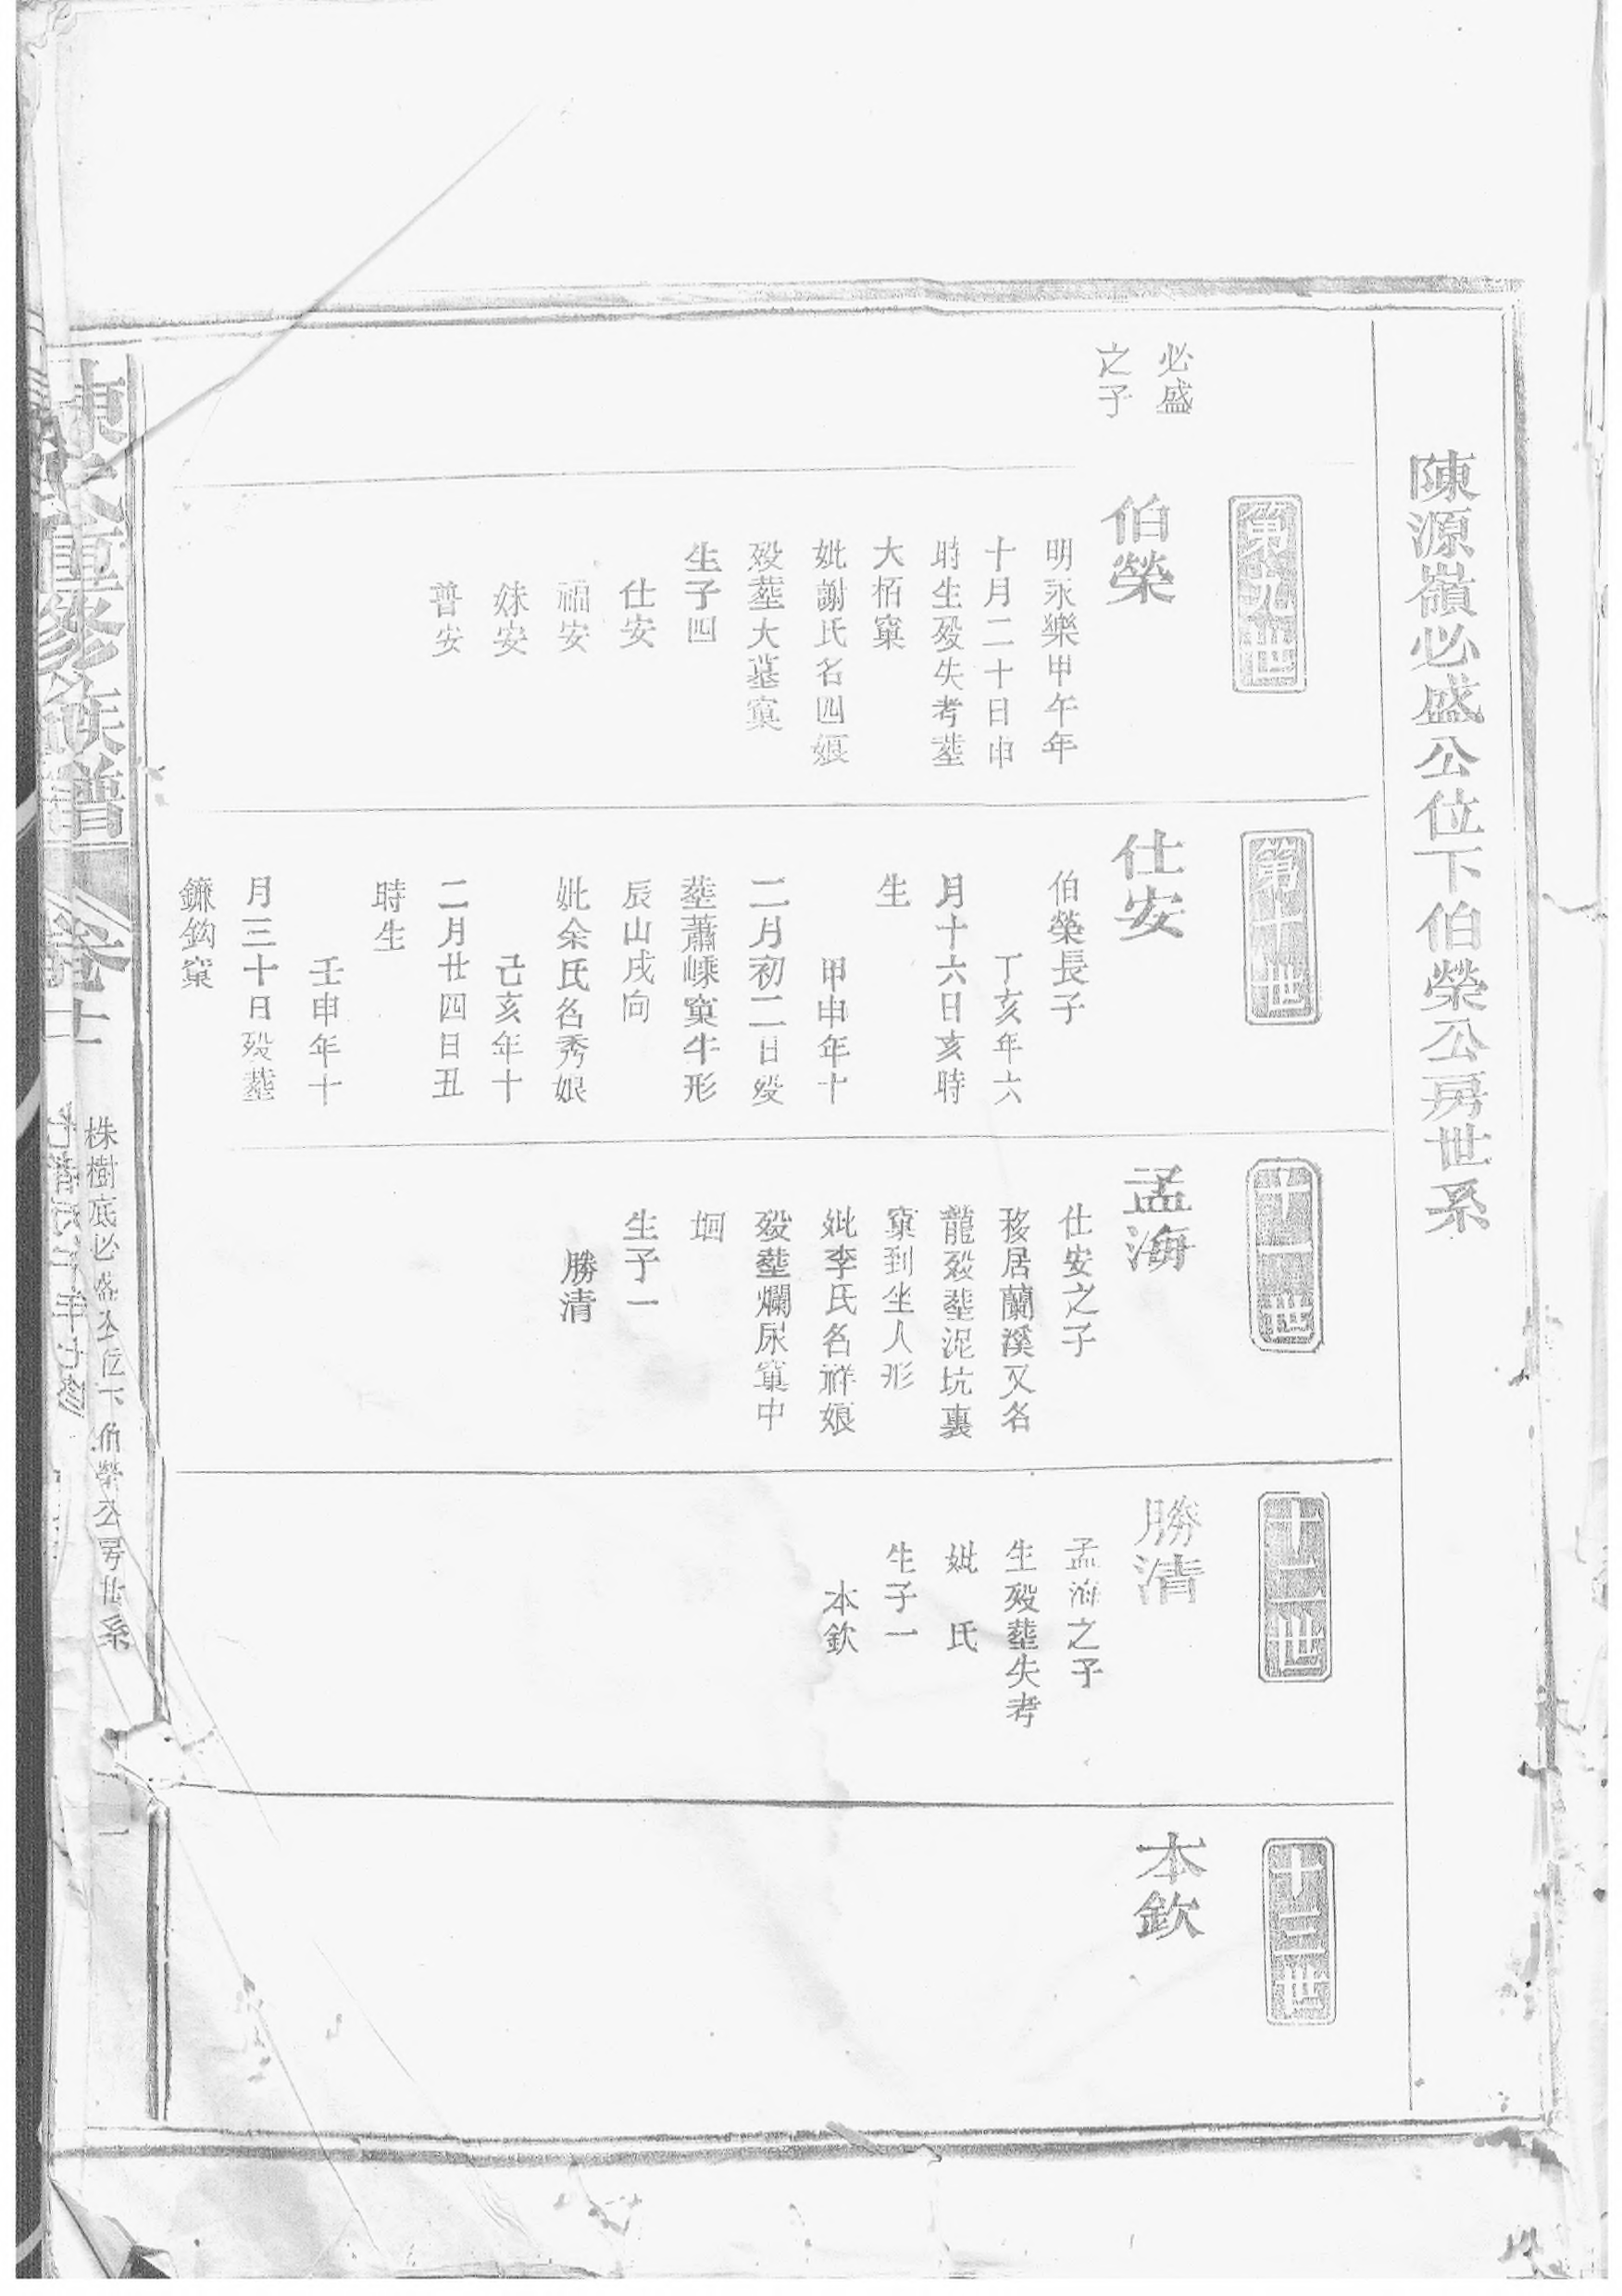 陳源嶺必盛公位下伯榮公房世系
必盛
之子
第九世
伯榮
明永樂甲午年
十月二十日申
時生殁失考塟
大栢窠
妣謝氏名四娘
殁塟大墓窠
生子四
仕安
福安
妹安
普安
第十世
仕安
伯榮長子
丁亥年六
月十六日亥時
生
甲申年十
二月初二日殁
塟蕭嵊窠牛形
辰山戌向
妣余氏名秀娘
己亥年十
二月廿四日丑
時生
壬申年十
月三十日殁塟
鐮鈎窠
十一世
孟海
仕安之子
移居蘭溪又名
龍殁塟泥坑裏
窠到坐人形
妣李氏名祥娘
殁塟爛尿窠中
𡇈
生子一
勝清
十二世
勝清
孟海之子
生殁塟失考
妣 氏
生子一
本欽
十三世
本欽
重修族譜
株樹底必盛公位下伯榮公房世系
一